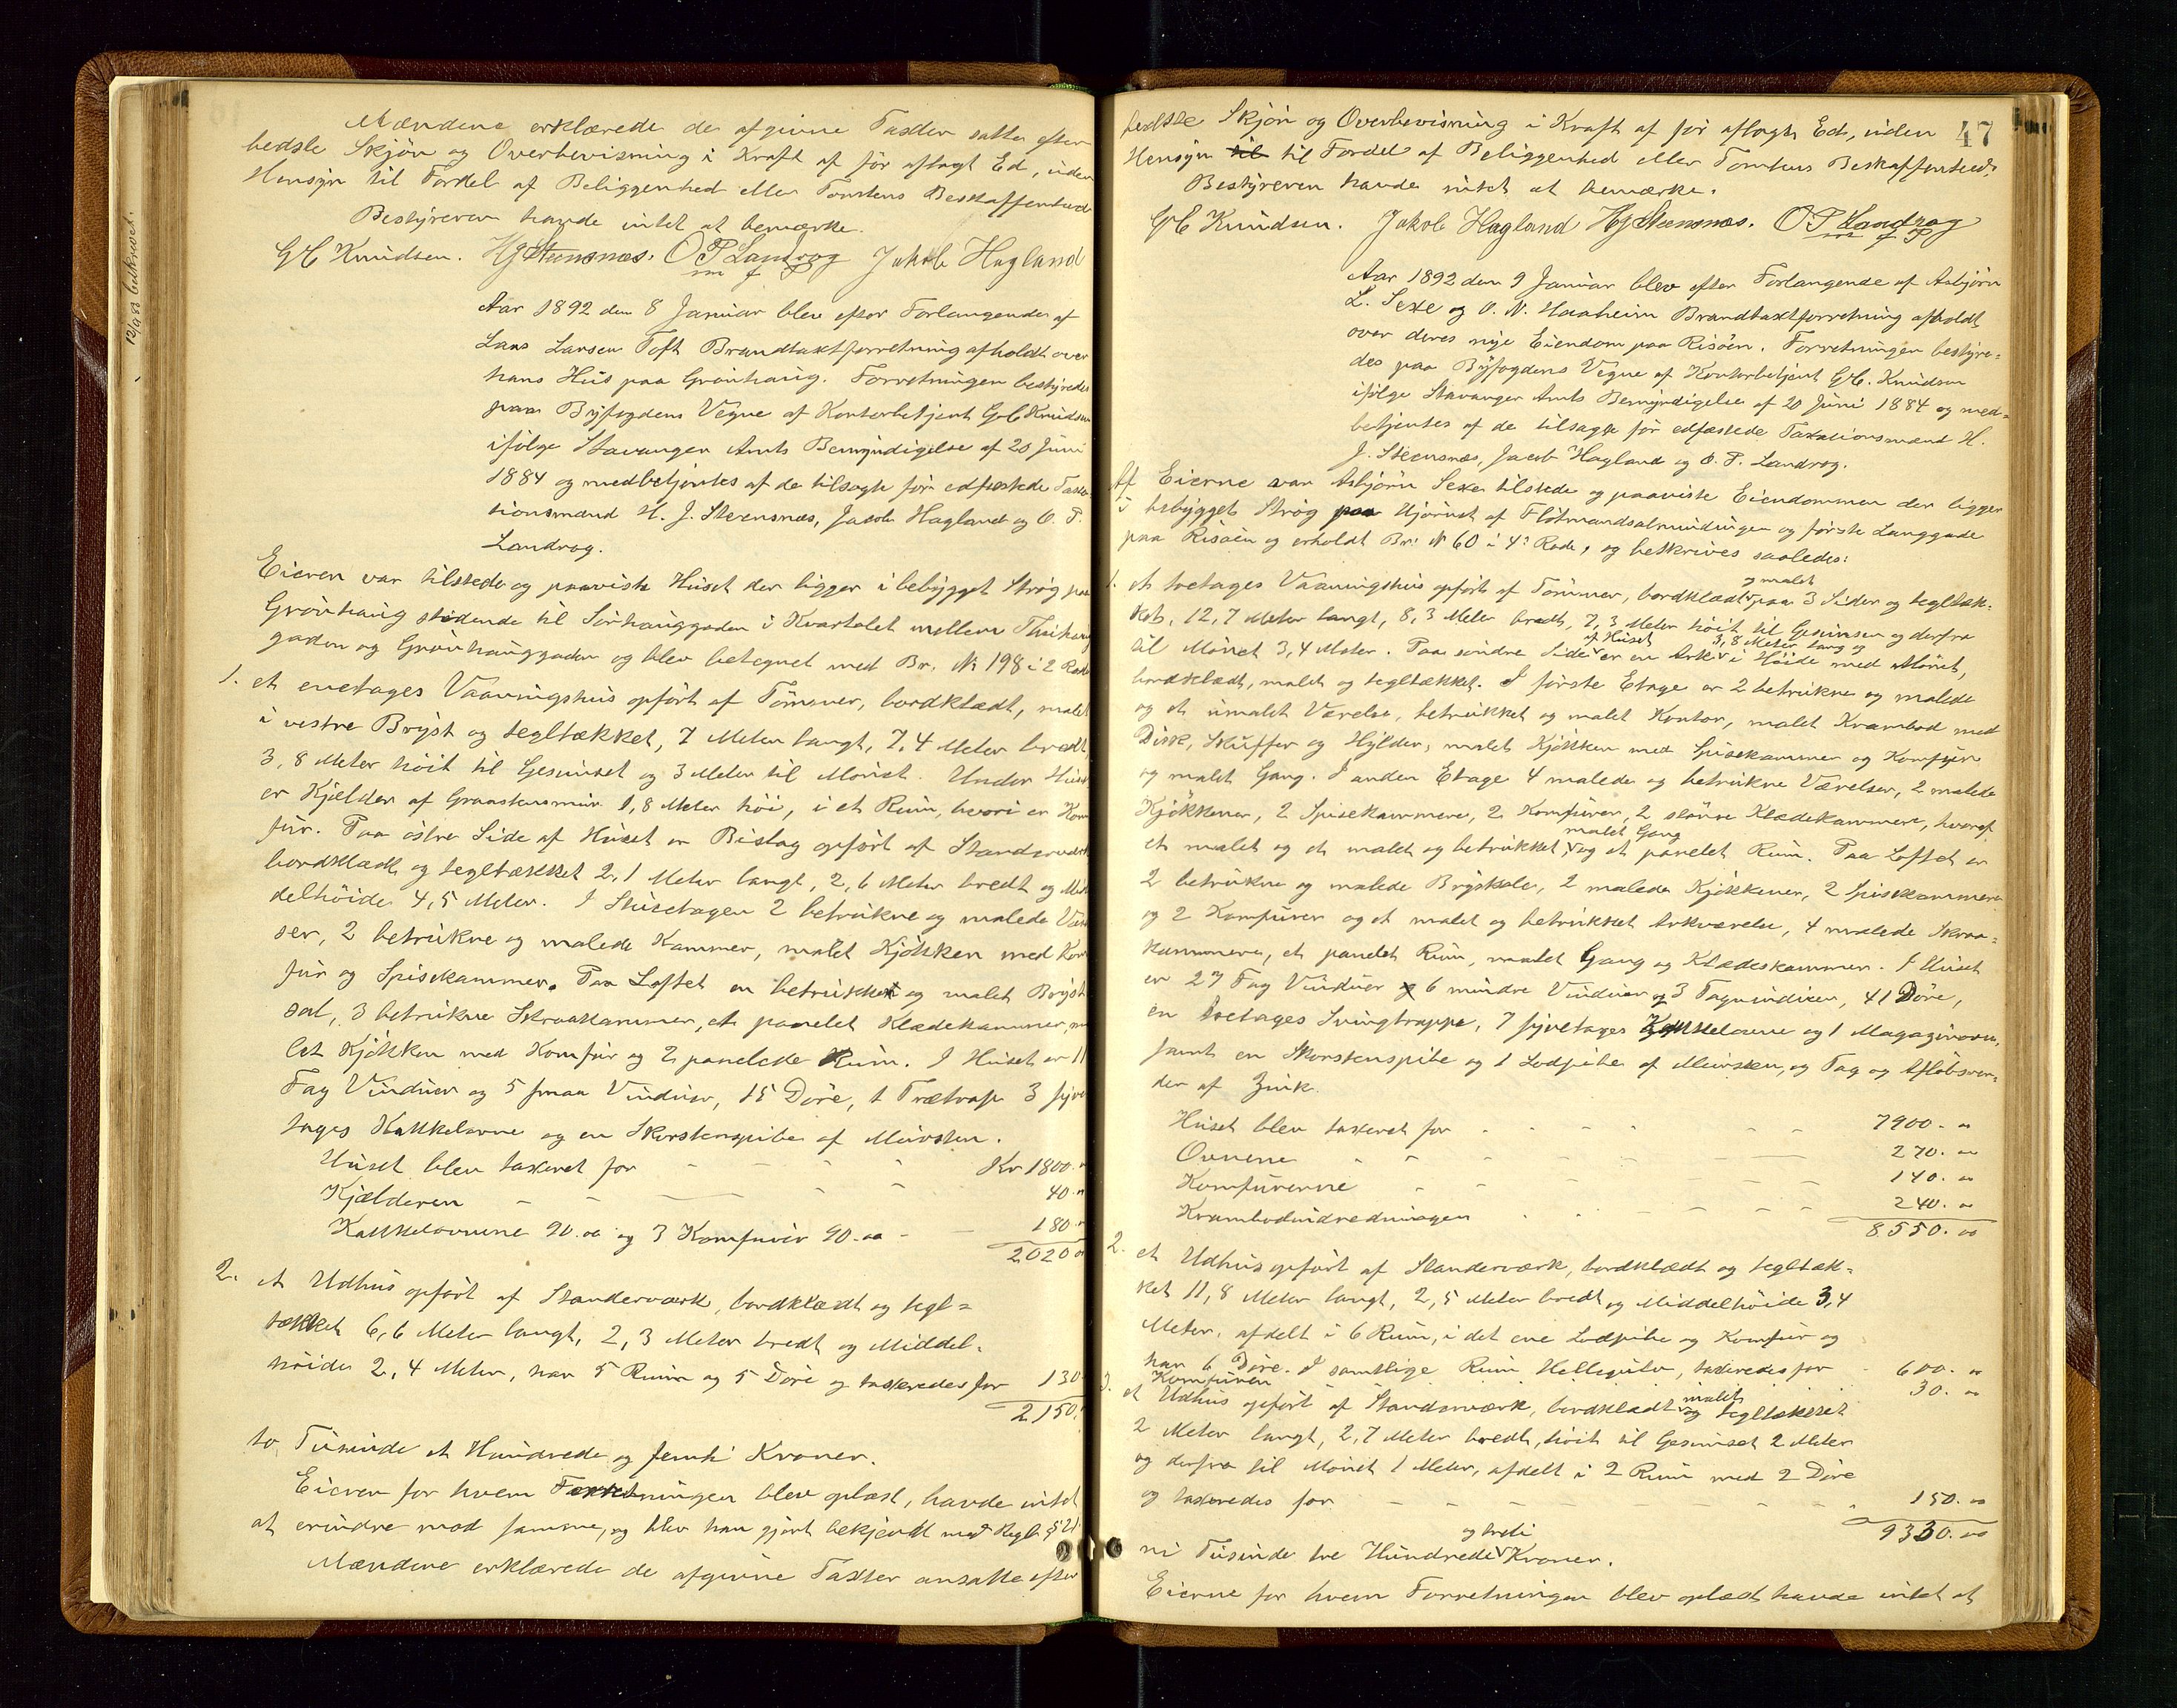 12/9 88 bekrevet.
Mændene erklærede de afgivne Taxter satte efter
bedste Skjøn og Overbevisning i Kraft af før aflagt Ed, uden
Hensyn til Fordel af Beliggenhed eller Tomtens Beskaffenhed
Bestyreren havde intet at bemærke.
G C Knudsen. H J Steensnæs. O P Landrog Jakob Hagland
m f P
Aar 1892 den 8 Januar blev efter Forlangende af
Lars Larsen Toft Brandtaxtforretning afholdt over
hans Hus paa Grønhaug. Forretningen bestyredes
paa Byfogdens Vegne af Kontorbetjent G C Knudsen
ifølge Stavanger Amts Bemyndigelse af 20 Juni
1884 og medbetjentes af de tilsagte før edfæstede Taxa-
tionsmænd H. J. Steensnæs, Jacob Hagland og O. P.
Landrog.
Eieren var tilstede og paaviste Huset der ligger i bebygget Strøg paa
Grønhaug stødende til Sørhauggaden i Kvartalet mellem Thuhaug
gaden og Grønhauggaden og blev betegnet med Br. № 198 i 2 Rode
1. et enetages Vaaningshus opført af Tømmer, bordklædt, malet
i vestre Bryst og tegltækket, 7 Meter langt, 7,4 Meter bredt,
3,8 Meter høit til Gesimset og 3 Meter til Mønet. Under Huset
er Kjælder af Graastensmur 1,8 Meter høi, i et Rum, hvori er Kom
fur. Paa østre Side af Huset er Bislag opført af Standerværk
bordklædt og tegltækket 2,1 Meter langt, 2,6 Meter bredt og Mid
delhøide 4,5 Meter. I Stuetagen 2 betrukne og malede Værel
ser, 2 betrukne og malede Kammer, malet Kjøkken med Kom
fur og Spisekammer. Paa Loftet en betrukket og malet Bryst
sal, 3 betrukne Skraakammer, et panelet Klædekammer, ma
let Kjøkken med Komfur og 2 panelede Rum. I Huset er 11
Fag Vinduer og 5 smaa Vinduer, 15 Døre, 1 Trætrap 3 fyr
tages Kakkelovne og en Skorstenspibe af Mursten.
Huset blev taxeret for - - - - Kr 1800.
Kjælderen - - - - - 40.
Kakkelovnene 90.00 og 3 Komfurer 90.00 - - 180.
2020 00
2. et Udhus opført af Standerværk, bordklædt og tegl=
tækket 6,6 Meter langt, 2,3 Meter bredt og Middel-
høide 2,4 Meter, har 5 Rum og 5 Døre og taxeredes for 130
2150.
to Tusinde et Hundrede og femti Kroner.
Eieren for hvem Forretningen blev oplæst, havde intet
at erindre mod samme, og blev han gjort bekjendt med Regl. § 21
Mændene erklærede de afgivne Taxter ansatte efter
47
bedste Skjøn og Overbevisning i Kraft af før aflagte Ed, uden
Hensyn til til Fordel af Beliggenhed eller Tomtens Beskaffenhed.
Bestyreren havde intet at bemærke.
G C Knudsen. Jakob Hagland H J Steensnæs. O P Landrog
m f P
Aar 1892 den 9 Januar blev efter Forlangende af Asbjørn
L. Sexe og O. N. Haaheim Brandtaxtforretning afholdt
over deres nye Eiendom paa Risøen. Forretningen bestyre=
des paa Byfogdens Vegne af Kontorbetjent G C. Knudsen
ifølge Stavanger Amts Bemyndigelse af 20 Juni 1884 og med=
betjentes af de tilsagte før edfæstede Taxationsmænd H.
J. Steensnæs, Jacob Hagland og O. P. Landrog.
Af Eierne var Asbjørn Sexe tilstede og paaviste Eiendommen der ligger
i bebygget Strøg paa Hjørnet af Flotmandsalmindingen og første Langgade
paa Risøen og erholdt Br: № 60 i 4de Rode, og beskrives saaledes:
og malet
1. et toetages Vaaningshus opført af Tømmer, bordklædt paa 3 Sider og tegltæk-
ket, 12,7 Meter langt, 8,3 Meter bredt, 7,3 Meter høit til Gesimsen og derfra
af Huset 3,8 Meter lang og
til Mønet 3,4 Meter. Paa søndre Side er en Ark i Høide med Mønet,
bordklædt, malet og tegltækket. I første Etage er 2 betrukne og malede
og et umalet Værelse, betrukket og malet Kontor, malet Krambod med
Disk, Skuffer og Hylder, malet Kjøkken med Spisekammer og Komfur
og malet Gang. I anden Etage 4 malede og betrukne Værelser, 2 malede
Kjøkkener, 2 Spisekammere, 2 Komfurer, 2 større Klædekammere, hvoraf
malet Gang
et malet og et malet og betrukket, og et panelet Rum. Paa Loftet er
2 betrukne og malede Brystsale, 2 malede Kjøkkener, 2 Spisekammere
og 2 Komfurer og et malet og betrukket Arkværelse, 4 malede Skraa=
kammere, et panelet Rum, malet Gang og Klædeskammer. I Huset
er 27 Fag Vinduer 6 mindre Vinduer og 3 Tagvinduer, 41 Døre,
en toetages Svingtrappe, 7 fyretages Kakkelovne og 1 Magasinovn,
samt en Skorstenspibe og 1 Lodpibe af Mursten, og Tag og Afløbsren-
der af Zink.
Huset blev taxeret for - - - - - - 7900. 00
Ovnene - - - - - - 270. 00
Komfurerne - - - - - - 140. 00
Krambodindredningen - - - - - 240. 00
8550. 00
2. et Udhus opført af Standerværk, bordklædt og tegltæk=
ket 11,8 Meter langt, 2,5 Meter bredt og Middelhøide 3,4
Meter, afdelt i 6 Rum, i det ene Lodpibe og Komfur og
har 6 Døre. I samtlige Rum Hellegulv, taxeredes for - 600. 00
Komfuren 30. 00
malet
3. et Udhus opført af Standerværk, bordklædt og tegltækket
2 Meter langt, 2,7 Meter bredt, høit til Gesimset 2 Meter
og derfra til Mønet 1 Meter, afdelt i 2 Rum med 2 Døre
og taxeredes for - - - - - - 150. 00
9330. 00
og tredi
ni Tusinde tre Hundrede Kroner.
Eierne for hvem Forretningen blev oplæst havde intet at